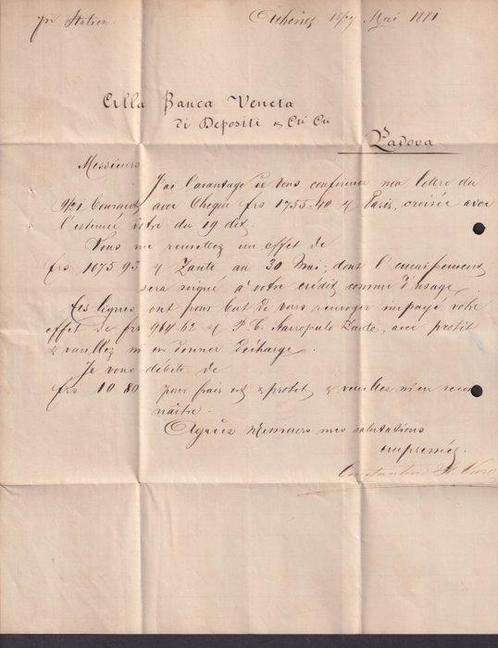 pr Italien Athènes 15/27 Mai 1881
Alla Banca Veneta
di Depositi & Cti Cti
Padova
Messieurs
J'ai l'avantage de vous confirmer ma lettre du
9/21 Courant, avec Chèque frs 1755.40 s/ Paris, croisée avec
l'estimée vôtre du 19 dit.
Vous me remettez un effet de
frs 1075 95 s/ Zante au 30 Mai; dont l'encaissement
sera soigné à votre crédit comme d'usage.
Ces lignes ont pour but de vous renvoyer impayé votre
effet de frs 964 62 s/ Zante, avec protêt
& veuillez m'en donner décharge.
Je vous débite de
frs 10 80 pour frais & protêt, & veuillez m'en recon
naître.
Agréez Messieurs mes salutations
empressées.
Constantin